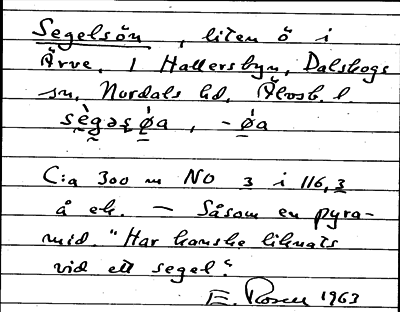 Segelsön, liten ö i
Ärve, 1 Hallersbyn, Dalskogs
sn, Nordals hd, Älvsb. l.
sègəs̨ ǿa, -ǿa
C:a 300 m NO 3 i 116,3
å ek. — Såsom en pyra-
mid. "Har kanske liknats
vid ett segel".
E. Rosen 1963